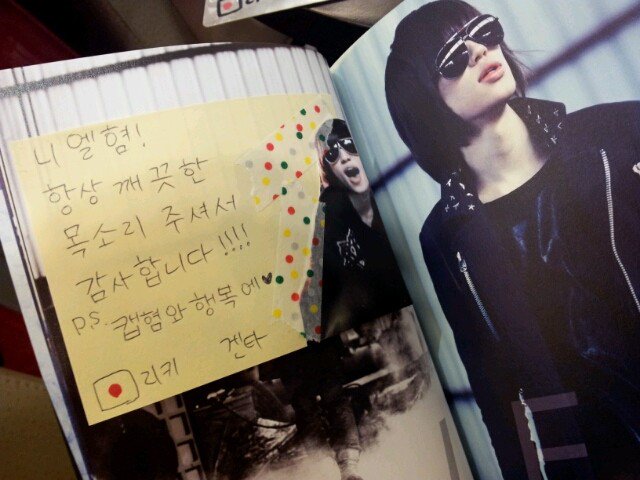 니엘혐!
항상 깨끗한
목소리 주셔서
감사합니다!!!!
p.s. 캡혐와 항목에♥
리키 겐타
E